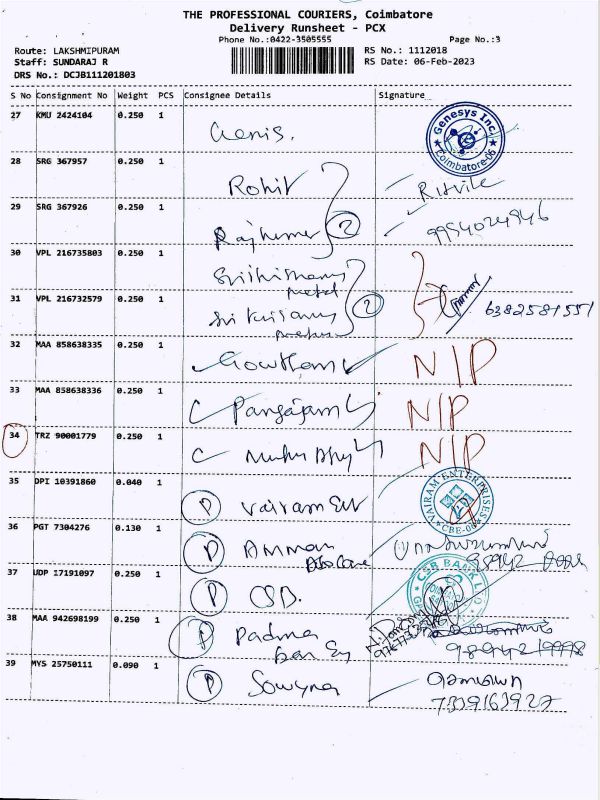 THE PROFESSIONAL COURIERS, Coimbatore
Delivery Runsheet - PCX
Phone No.:0422-3505555 Page No.:3
Route: LAKSHMIPURAM RS No.: 1112018
Staff: SUNDARAJ R RS Date: 06-Feb-2023
DRS No.: DCJB111201803
S No Consignment No Weight PCS Consignee Details Signature
27 KMU 2424104 0.250 1 Genesys Inc Coimbatore-06
28 SRG 367957 0.250 1 Rohit
29 SRG 367926 0.250 1 Rajkumar 2 9954024946
30 VPL 216735803 0.250 1
31 VPL 216732579 0.250 1 2 6382581551
32 MAA 858638335 0.250 1 Gowtham N/P
33 MAA 858638336 0.250 1 Pangajam N/P
34 TRZ 90001779 0.250 1 N/P
35 DPI 10391860 0.040 1 P Vairam Ent VAIRAM ENTERPRISES CBE-06
36 PGT 7304276 0.130 1 P Amman
37 UDP 17191097 0.250 1 P CSB. CSB BANK
38 MAA 942698199 0.250 1 P Padma
39 MYS 25750111 0.090 1 P Sowmya
7339163927